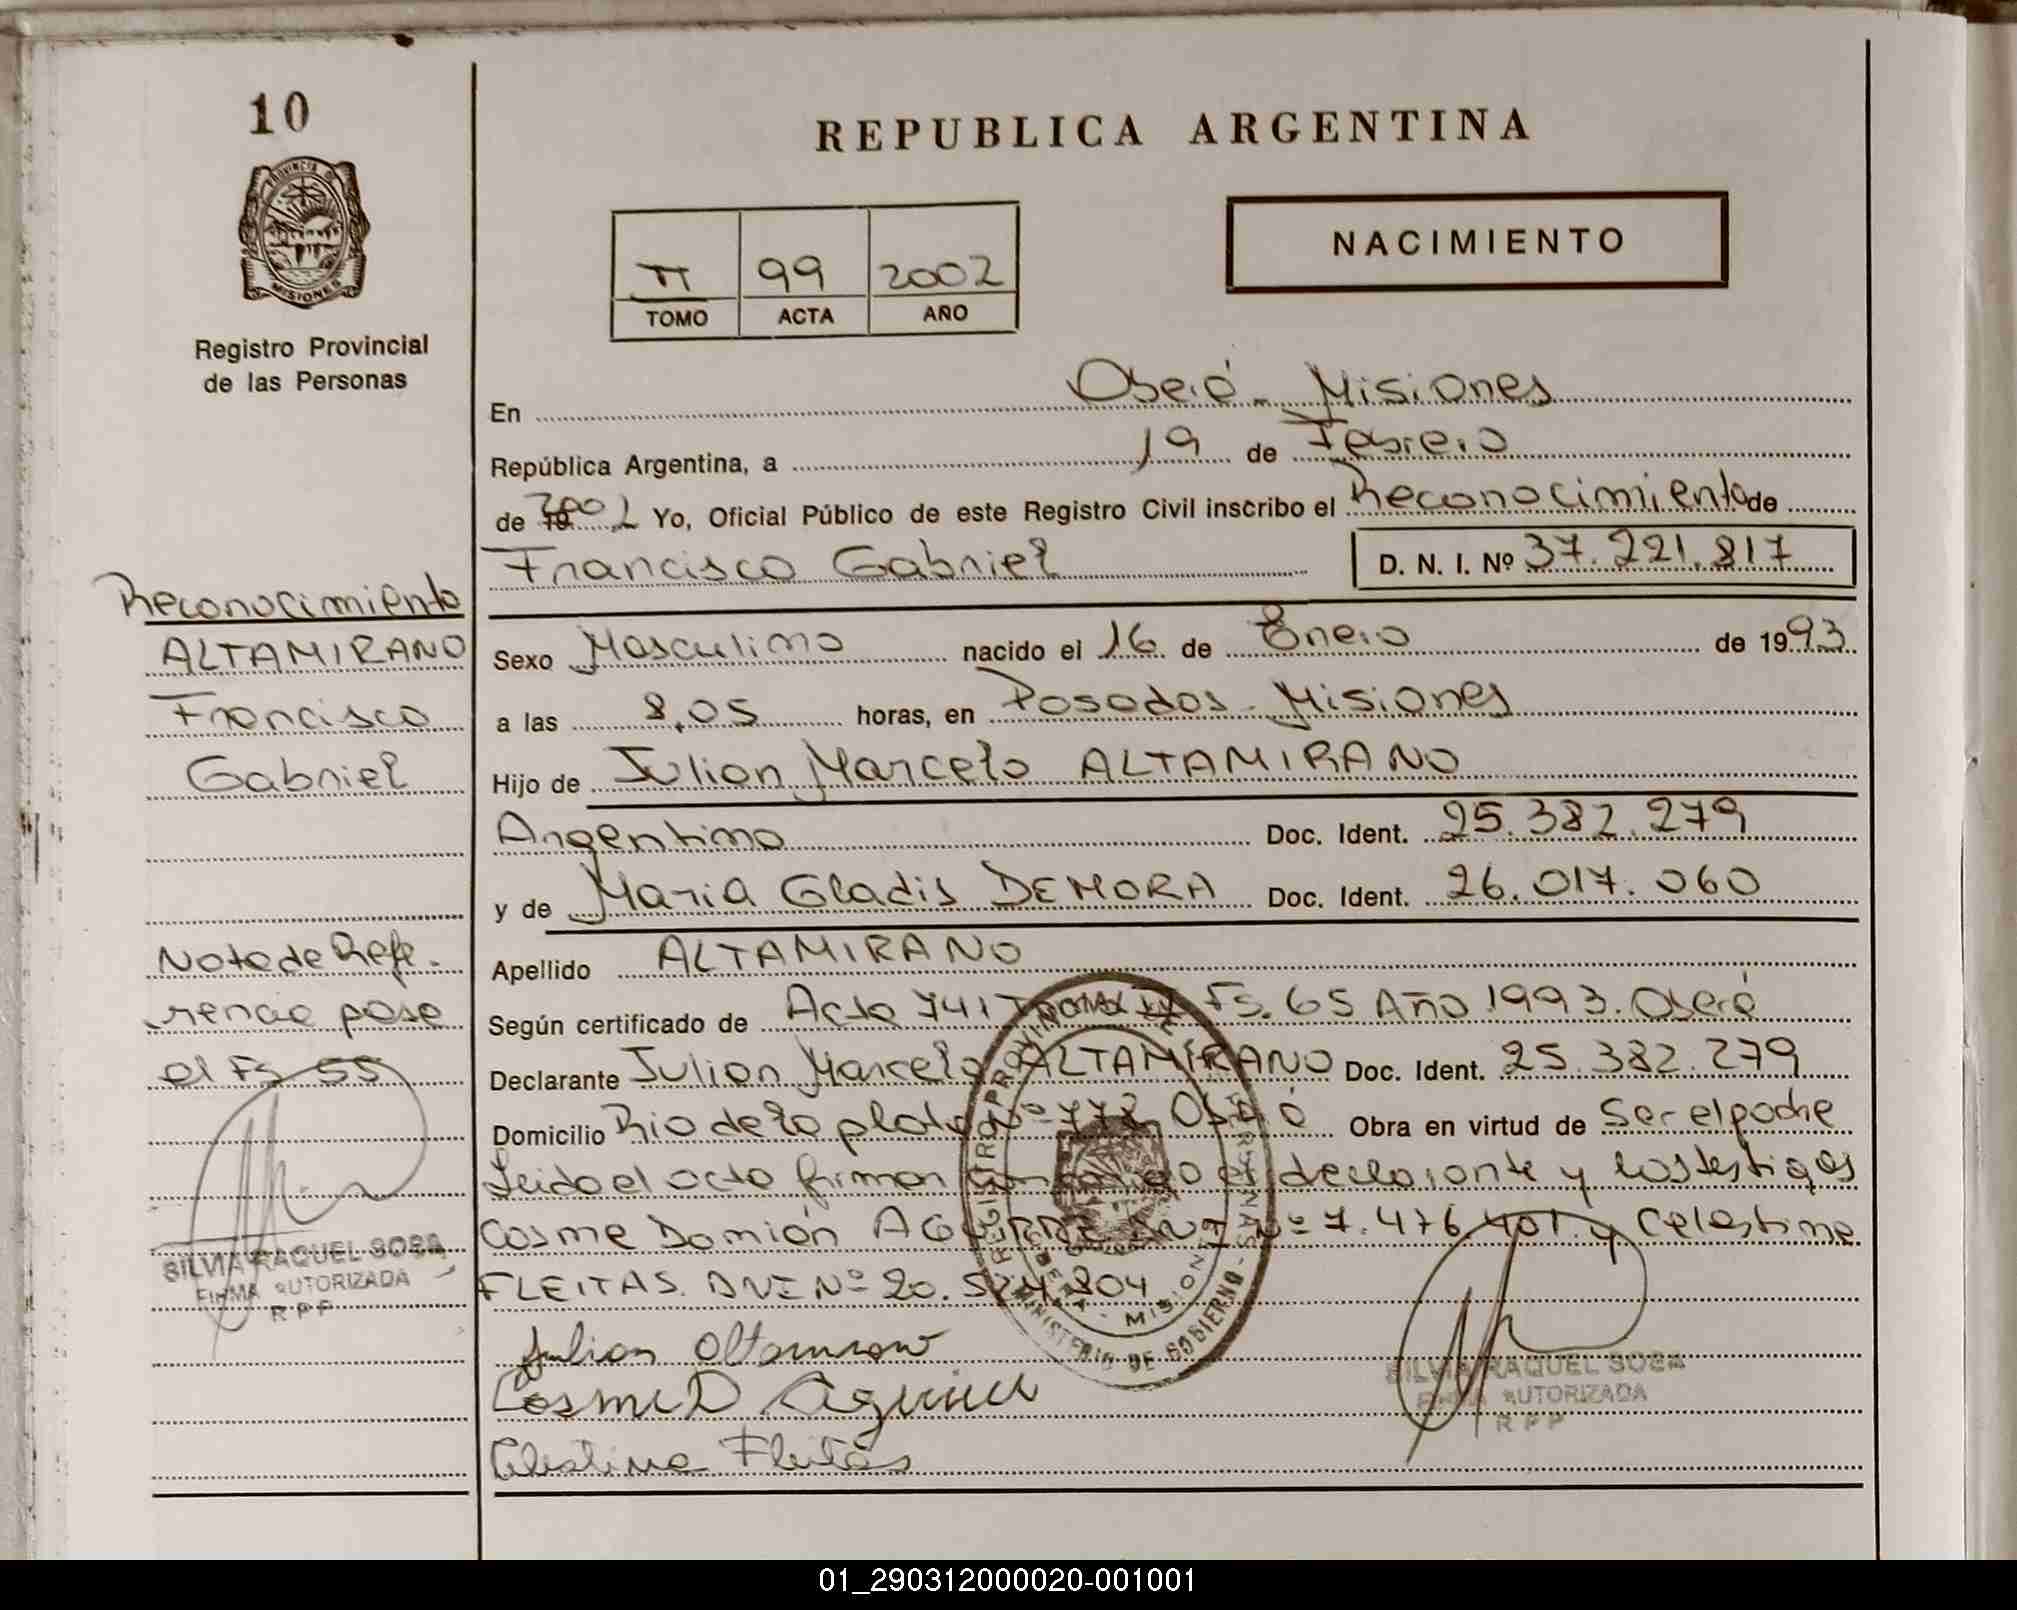 10
REPUBLICA ARGENTINA
PROVINCIA DE
MISIONES
NACIMIENTO
II 99 2002
TOMO ACTA AÑO
Registro Provincial
de las Personas
En Oberá - Misiones
República Argentina, a 19 de Febrero
de 2002 Yo, Oficial Público de este Registro Civil inscribo el Reconocimiento de
Francisco Gabriel D. N. I. Nº 37.221.817
Reconocimiento
ALTAMIRANO
Francisco
Gabriel
Sexo Masculino nacido el 16 de Enero de 1993
a las 8,05 horas, en Posadas - Misiones
Hijo de Julian Marcelo ALTAMIRANO
Argentino Doc. Ident. 25.382.279
y de Maria Gladis DEMORA Doc. Ident. 26.017.060
Nota de Refe-
rencia pase
al Fs 55
SILVIA RAQUEL SOSA
FIRMA AUTORIZADA
R P P
Apellido ALTAMIRANO
Según certificado de Acta 741 Tomo IV Fs. 65 Año 1993. Oberá
Declarante Julian Marcelo ALTAMIRANO Doc. Ident. 25.382.279
Domicilio Rio de la plata Nº 772 Oberá Obra en virtud de Ser el padre
Leido el acta firman conmigo el declarante y los testigos
Cosme Damián AGUIRRE DNI Nº 7.476.401 y Celestina
FLEITAS. DNI Nº 20.574.804
Julian Altamirano
Cosme D Aguirre
Celestina Fleitas
REGISTRO PROVINCIAL DE LAS PERSONAS
MINISTERIO DE GOBIERNO
MISIONES
SILVIA RAQUEL SOSA
FIRMA AUTORIZADA
R P P
01_290312000020-001001